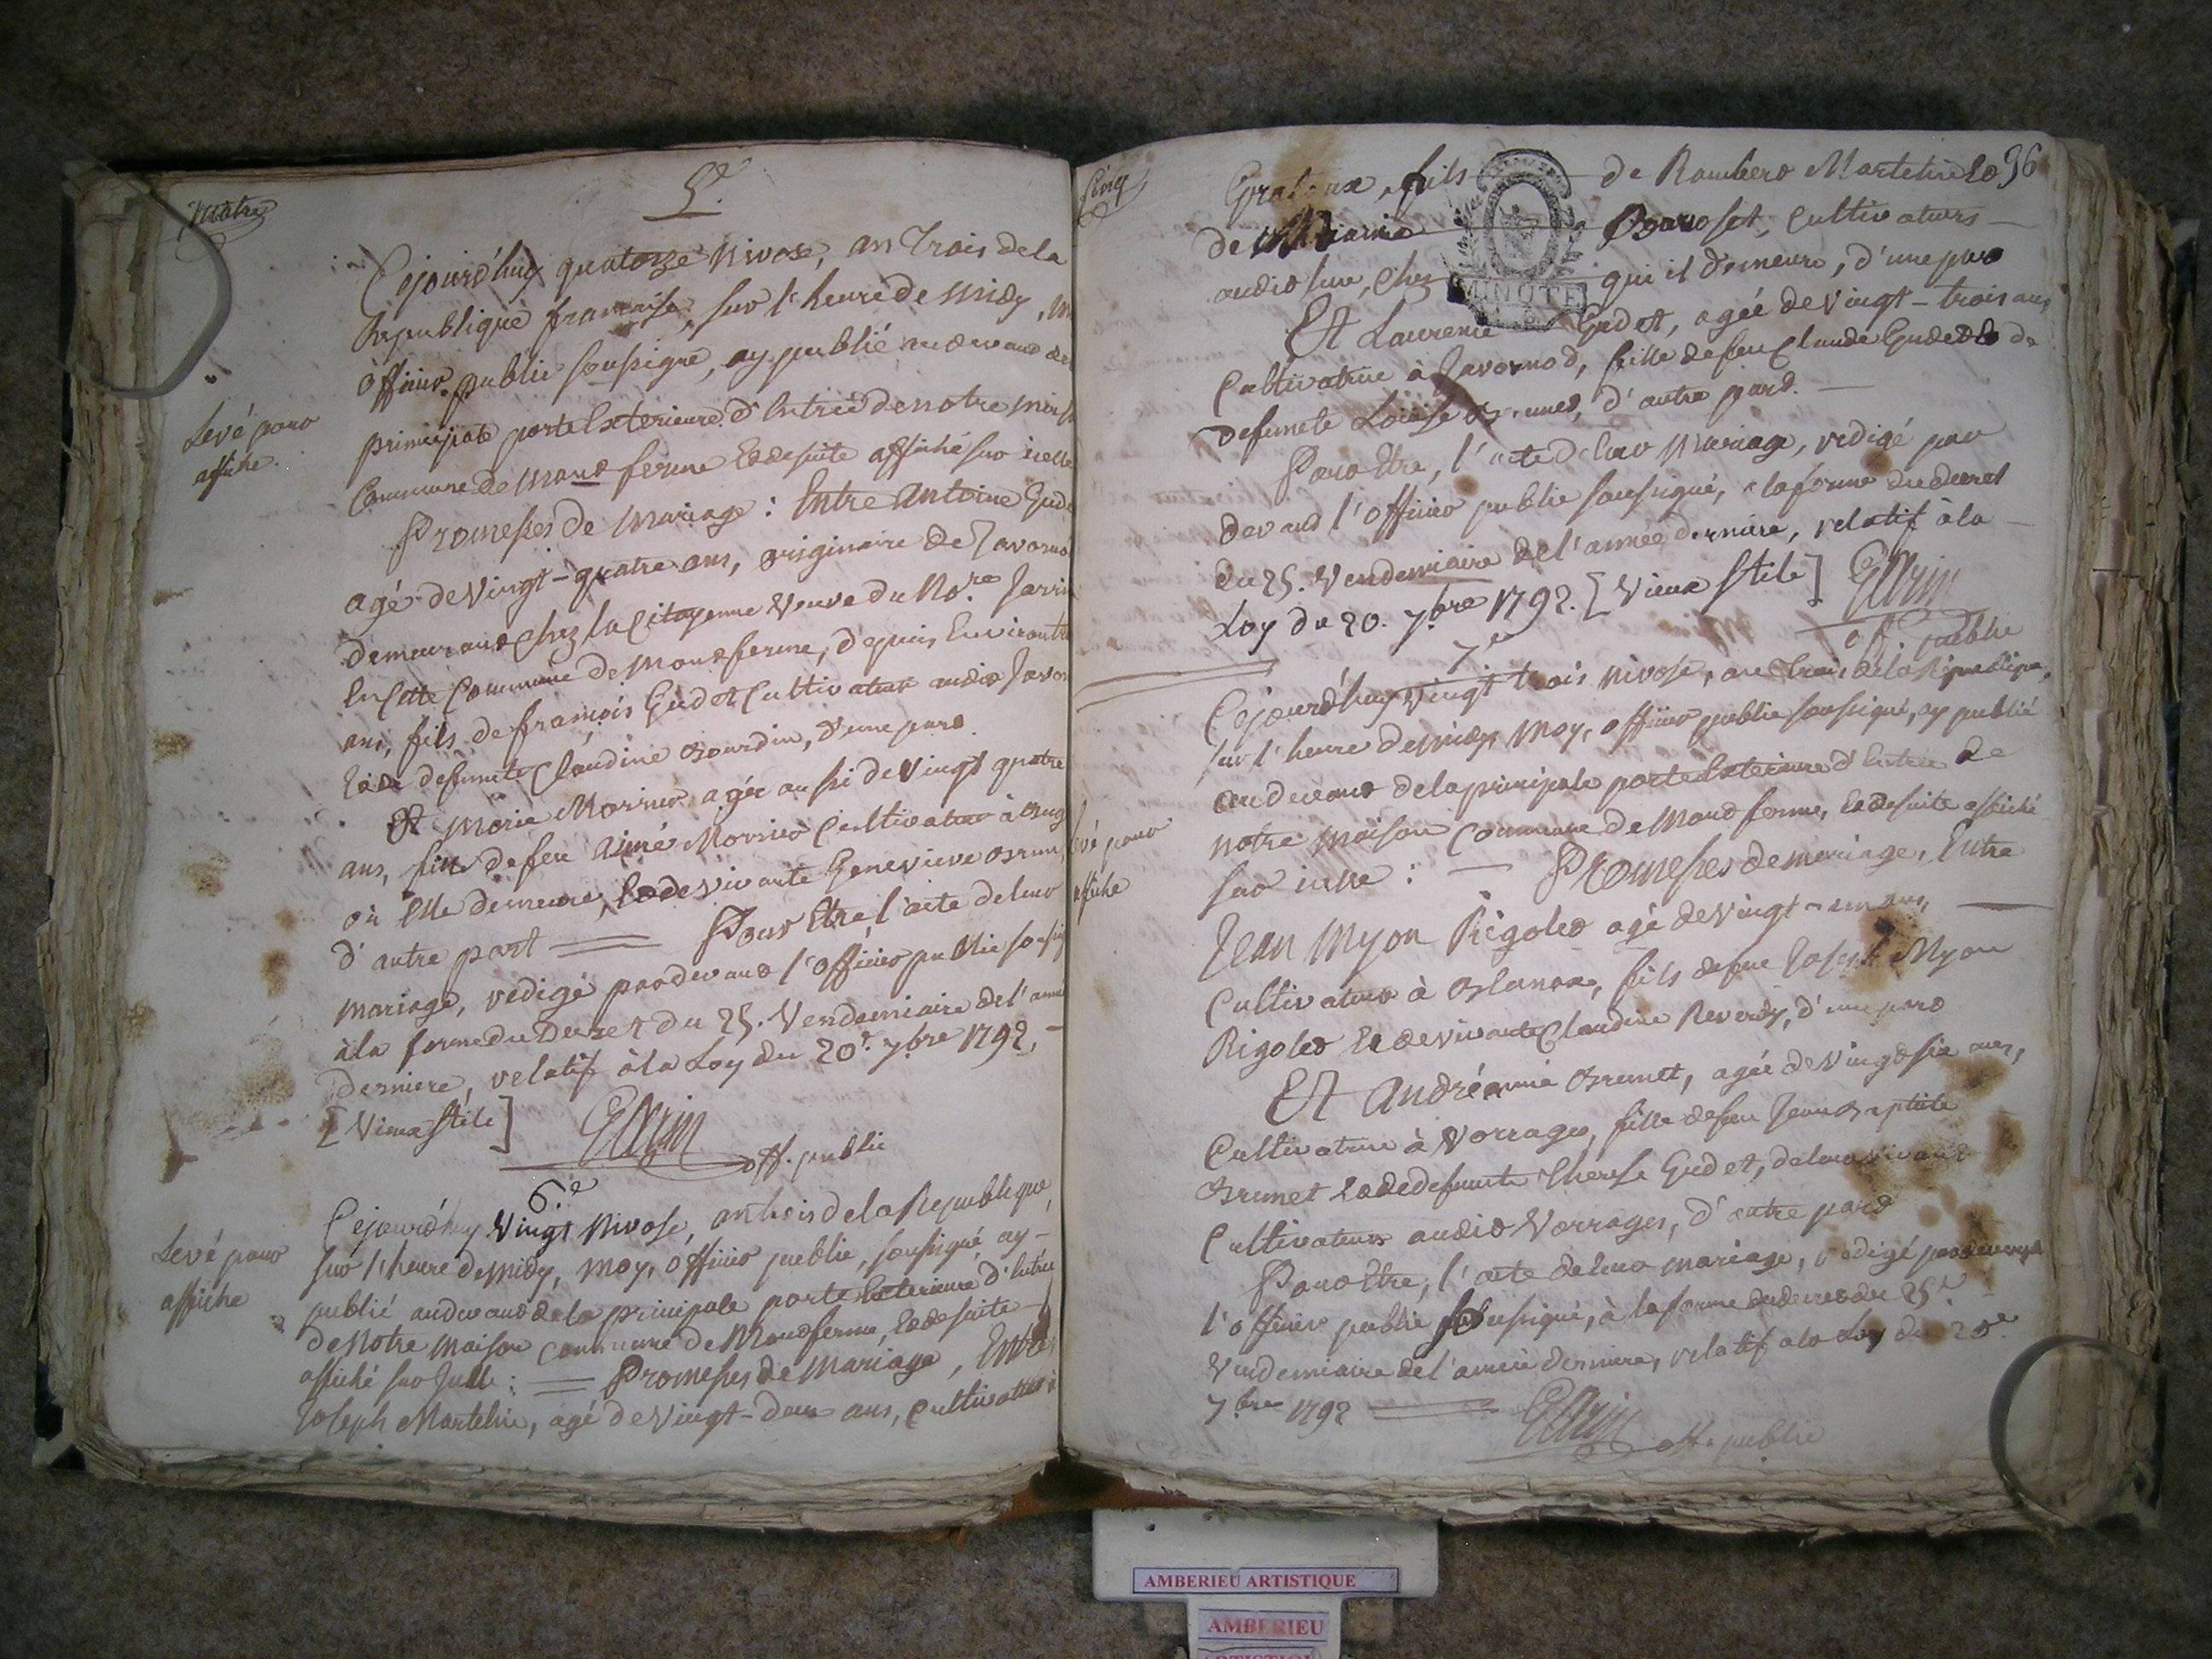 quatre
5.e
Cejourd'huy quatorze Nivose, an Trois de la
Republique française, sur l'heure de midy, m
officier public soussigné, ay publié audevant de
principale porte Exterieure d'Entrée de notre mais
Commune de Montferme Et de suite affiché sur icelle
Levé pour
affiche.
Promesses de Mariage : Entre Antoine Gud
agé de Vingt-quatre ans, originaire de Javorno
demeurant chez la Citoyenne Veuve du No.re Jarrin
En Cette Commune de Montferme, depuis Environ
ans, fils de françois Gudet Cultivateur audit Javor
Et de defuncte Claudine Bourdin, d'une part
Et Marie Mornier agée aussi de Vingt quatre
ans, fille de feu Aimé Mornier Cultivateur à
où Elle demeure, Et de vivante Genevieve Brun
d'autre part Pour Etre, l'acte de leur
Mariage, redigé pardevant l'officier public soussig
à la forme du Decret du 25. Vendemiaire de l'anné
derniere, relatif à la Loy du 20.e 7bre 1792,
[Vieux Stile] off. public
6.e
Cejourd'huy Vingt Nivose, an trois de la Republique,
Levé pour
affiche
sur l'heure de midy, moy, officier public, soussigné, ay
publié audevant de la principale porte Exterieure d'Entrée
de Notre Maison Commune de Montferme, Et de suite
affiché sur Icelle : Promesses de Mariage, Entre
Joseph Martelin, agé de Vingt-deux ans, Cultivateur à
Cinq
96
fils de Rambert Martelin Et
de Bavoset, Cultivateurs
audit lieu, Chez qui il demeure, d'une part
Et Laurence Gudet, agée de Vingt-trois ans,
Cultivatrice à Javornod, fille de feu Claude Gudet Et de
defuncte Loüise Brunet, d'autre part.
Pour Etre, l'acte de leur Mariage, redigé par
devant l'officier public soussigné, a la forme du decret
du 25. Vendemiaire de l'année derniere, relatif à la
Loy du 20. 7bre 1792. [Vieux Stile]
off. public
7e
Cejourd'huy Vingt trois Nivose, an trois de la Republique,
sur l'heure de midy, moy, officier public soussigné, ay publié
audevant de la principale porte Exterieure d'Entrée de
notre Maison Commune de Montferme, Et de suite affiché
Levé pour
affiche
sur icelle : Promesses de mariage, Entre
Jean Myon Rigolet agé de Vingt-un ans,
Cultivateur à Blanax, fils de feu Joseph Myon
Rigolet Et de vivante Claudine Reverdy, d'une part
Et Andréanne Brunet, agée de Vingt six ans,
Cultivatrice à Vorrages, fille de feu Jean Baptiste
Brunet Et de defuncte Therese Gudet, de leur vivant
Cultivateurs audit Vorrages, d'autre part
Pour Etre, l'acte de leur mariage, redigé pardevant
l'officier public soussigné, à la forme du decret du 25.e
Vendemiaire de l'année derniere, relatif a la Loy du 20.e
7bre 1792
off. public
AMBERIEU ARTISTIQUE
AMBERIEU
ARTISTIQUE